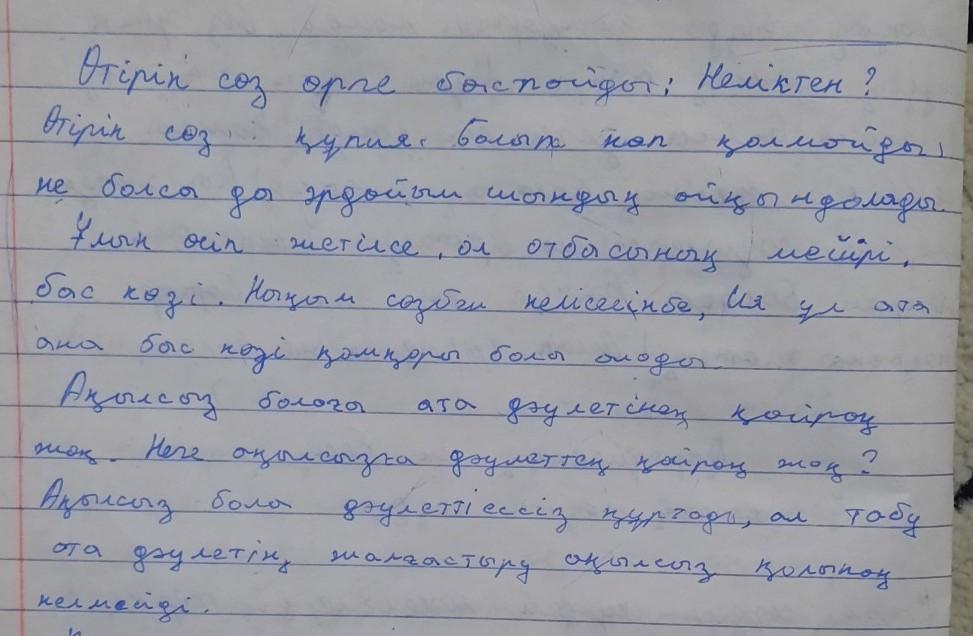 Өтірік сөз өрге баспайды; Неліктен?
Өтірік сөз құпия болып көп қалмайды,
не болса да әрдайым шындық айқындалады.
Ұлың өсіп жетілсе, ол отбасының мейірі,
бас көзі. Нақыл сөзбен келісесіңбе, Ия ұл ата
ана бас көзі қамқоры бола алады.
Ақылсыз балаға ата дәулетінен қайран
жоқ. Неге ақылсызға дәулеттен қайран жоқ?
Ақылсыз бала дәулетті ессіз құртады, ал табу
ата дәулетін, жалғастыру ақылсыз қолынан
келмейді.